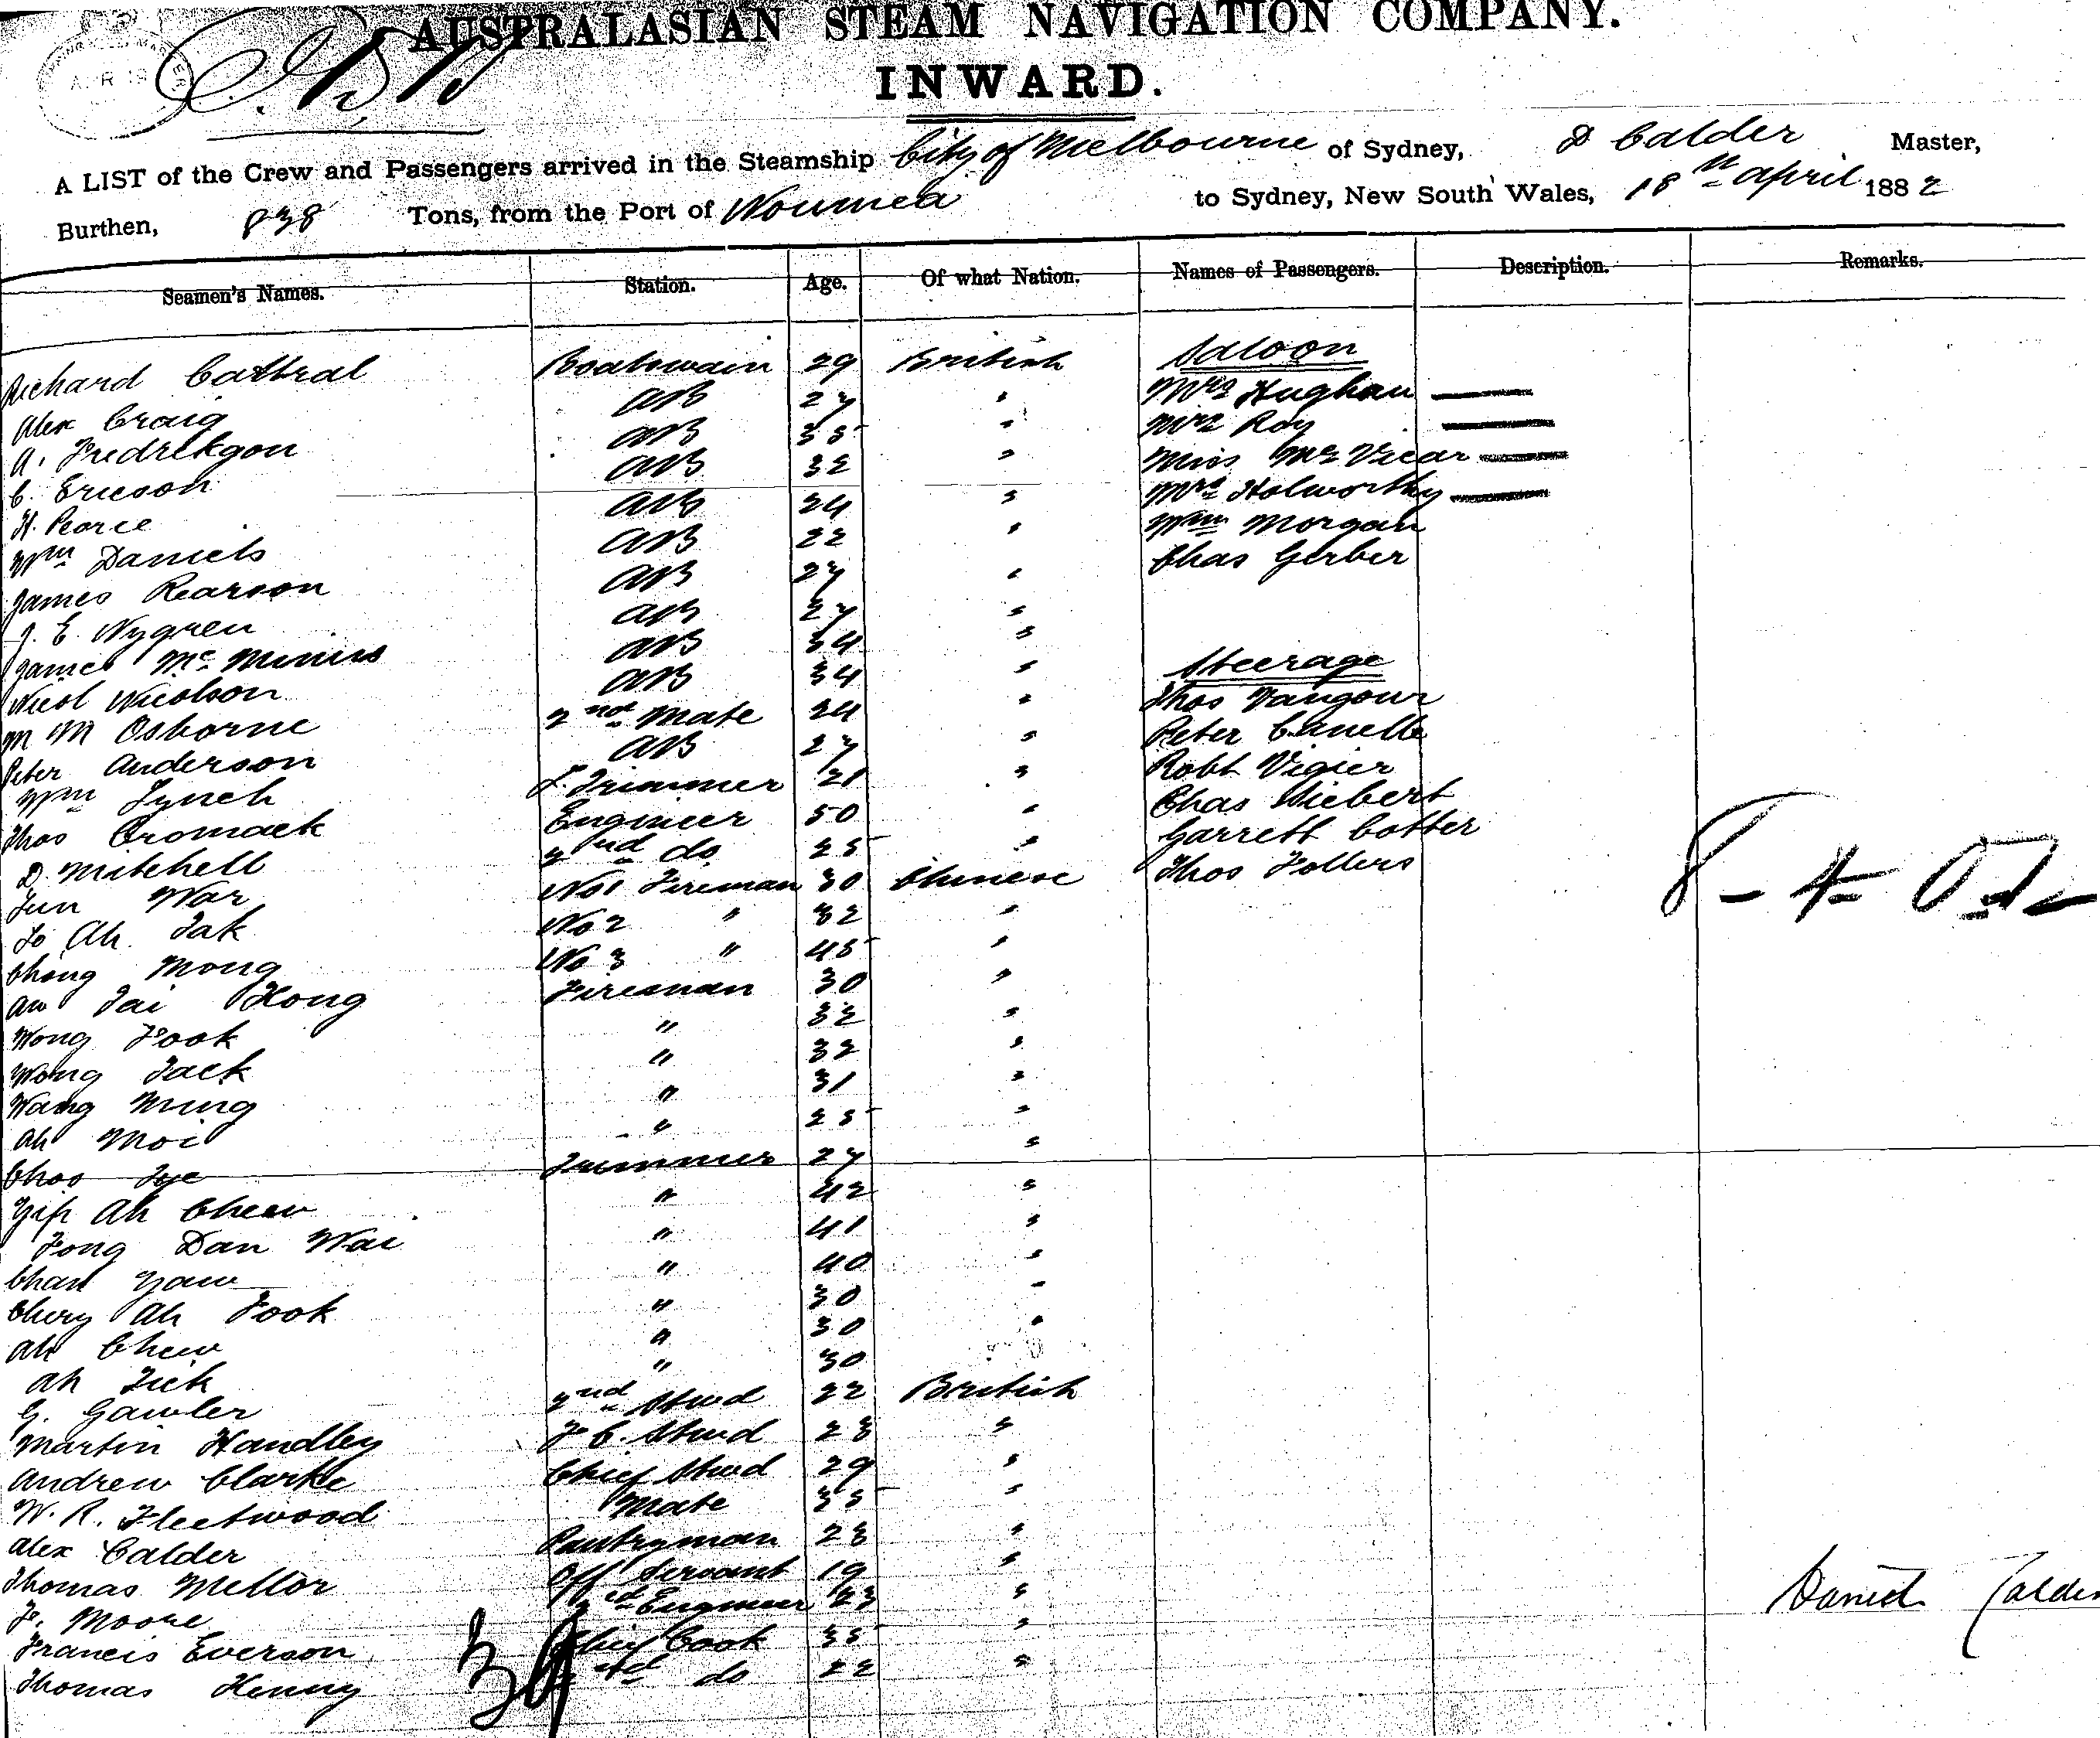 AUSTRALASIAN STEAM NAVIGATION COMPANY.
INWARD.
A LIST of the Crew and Passengers arrived in the Steamship City of Melbourne of Sydney, D Calder Master,
Burthen, 838 Tons, from the Port of Noumea to Sydney, New South Wales, 18th april 1882
Seamen's Names. Station. Age. Of what Nation. Names of Passengers. Description. Remarks.
Saloon
Richard Cathral Boatswain 29 British Mrs Hughan
Alex Craig AB 27 " Mrs Roy
A. Fredrikson AB 35 " Miss McVicar
C. Ericson AB 32 " Mrs Holworthy
H. Pearce AB 24 " Wm Morgan
Wm Daniels AB 22 " Chas Gerber
James Rearson AB 27 "
J. E. Nygren AB 27 "
James Mc Minns AB 34 "
Steerage
Nicol Nicolson AB 34 " Thos Vangour
M M Osborne 2nd Mate 24 " Peter
Peter Anderson AB 27 " Robt Vigier
Wm Lynch L. Trimmer 21 " Chas Siebert
Thos Cromack Engineer 50 " Garrett Cotter
D. Mitchell 2nd do 25 " Thos Follers
Fun War No1 Fireman 30 Chinese
Lo Ah Tak No 2 " 32 "
Chong Mong No 3 " 45 "
Aw Tai Hong Fireman 30 "
Wong Fook " 32 "
Wong Tack " 32 "
Wang Ming " 31 "
Ah Moi " 25 "
Choo Jye Trimmer 27 "
Yip Ah Cheew " 42 "
Fong Dan Wai " 41 "
Chan Yaw " 40 "
Ah Fook " 30 "
Ah Chew " 30 "
Ah Tick " 30
G. Gawler 2nd Stwd 22 British
Martin Handley F. C. Stwd 23 "
Andrew Clarke Chief Stwd 29 "
W. R. Fleetwood Mate 35 "
Alex Calder Pantryman 23 "
Thomas Mellor Off Servant 19 "
F. Moore 3rd Engineer 23 "
Francis Everson Chief Cook 35 "
Thomas Henny 2nd do 22 "
39
Daniel Calder